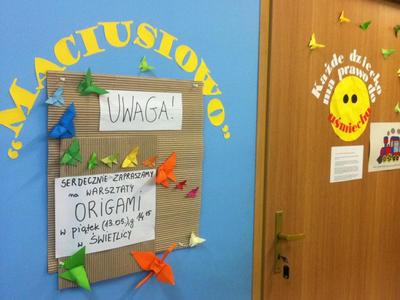 „MACIUSIOWO”
UWAGA!
SERDECZNIE ZAPRASZAMY
na WARSZTATY
ORIGAMI
w piątek (13.05.) g 14.15
w ŚWIETLICY
Każde dziecko
ma prawo do
uśmiechu